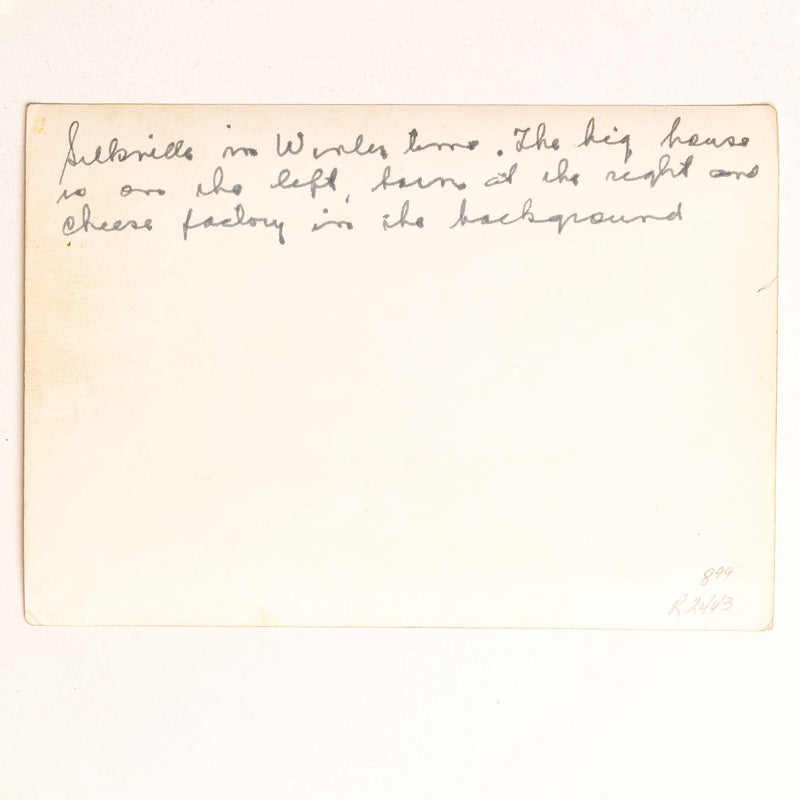 Silkville in Winter time. The big house
is on the left, barn at the right and
cheese factory in the background
899
R2443